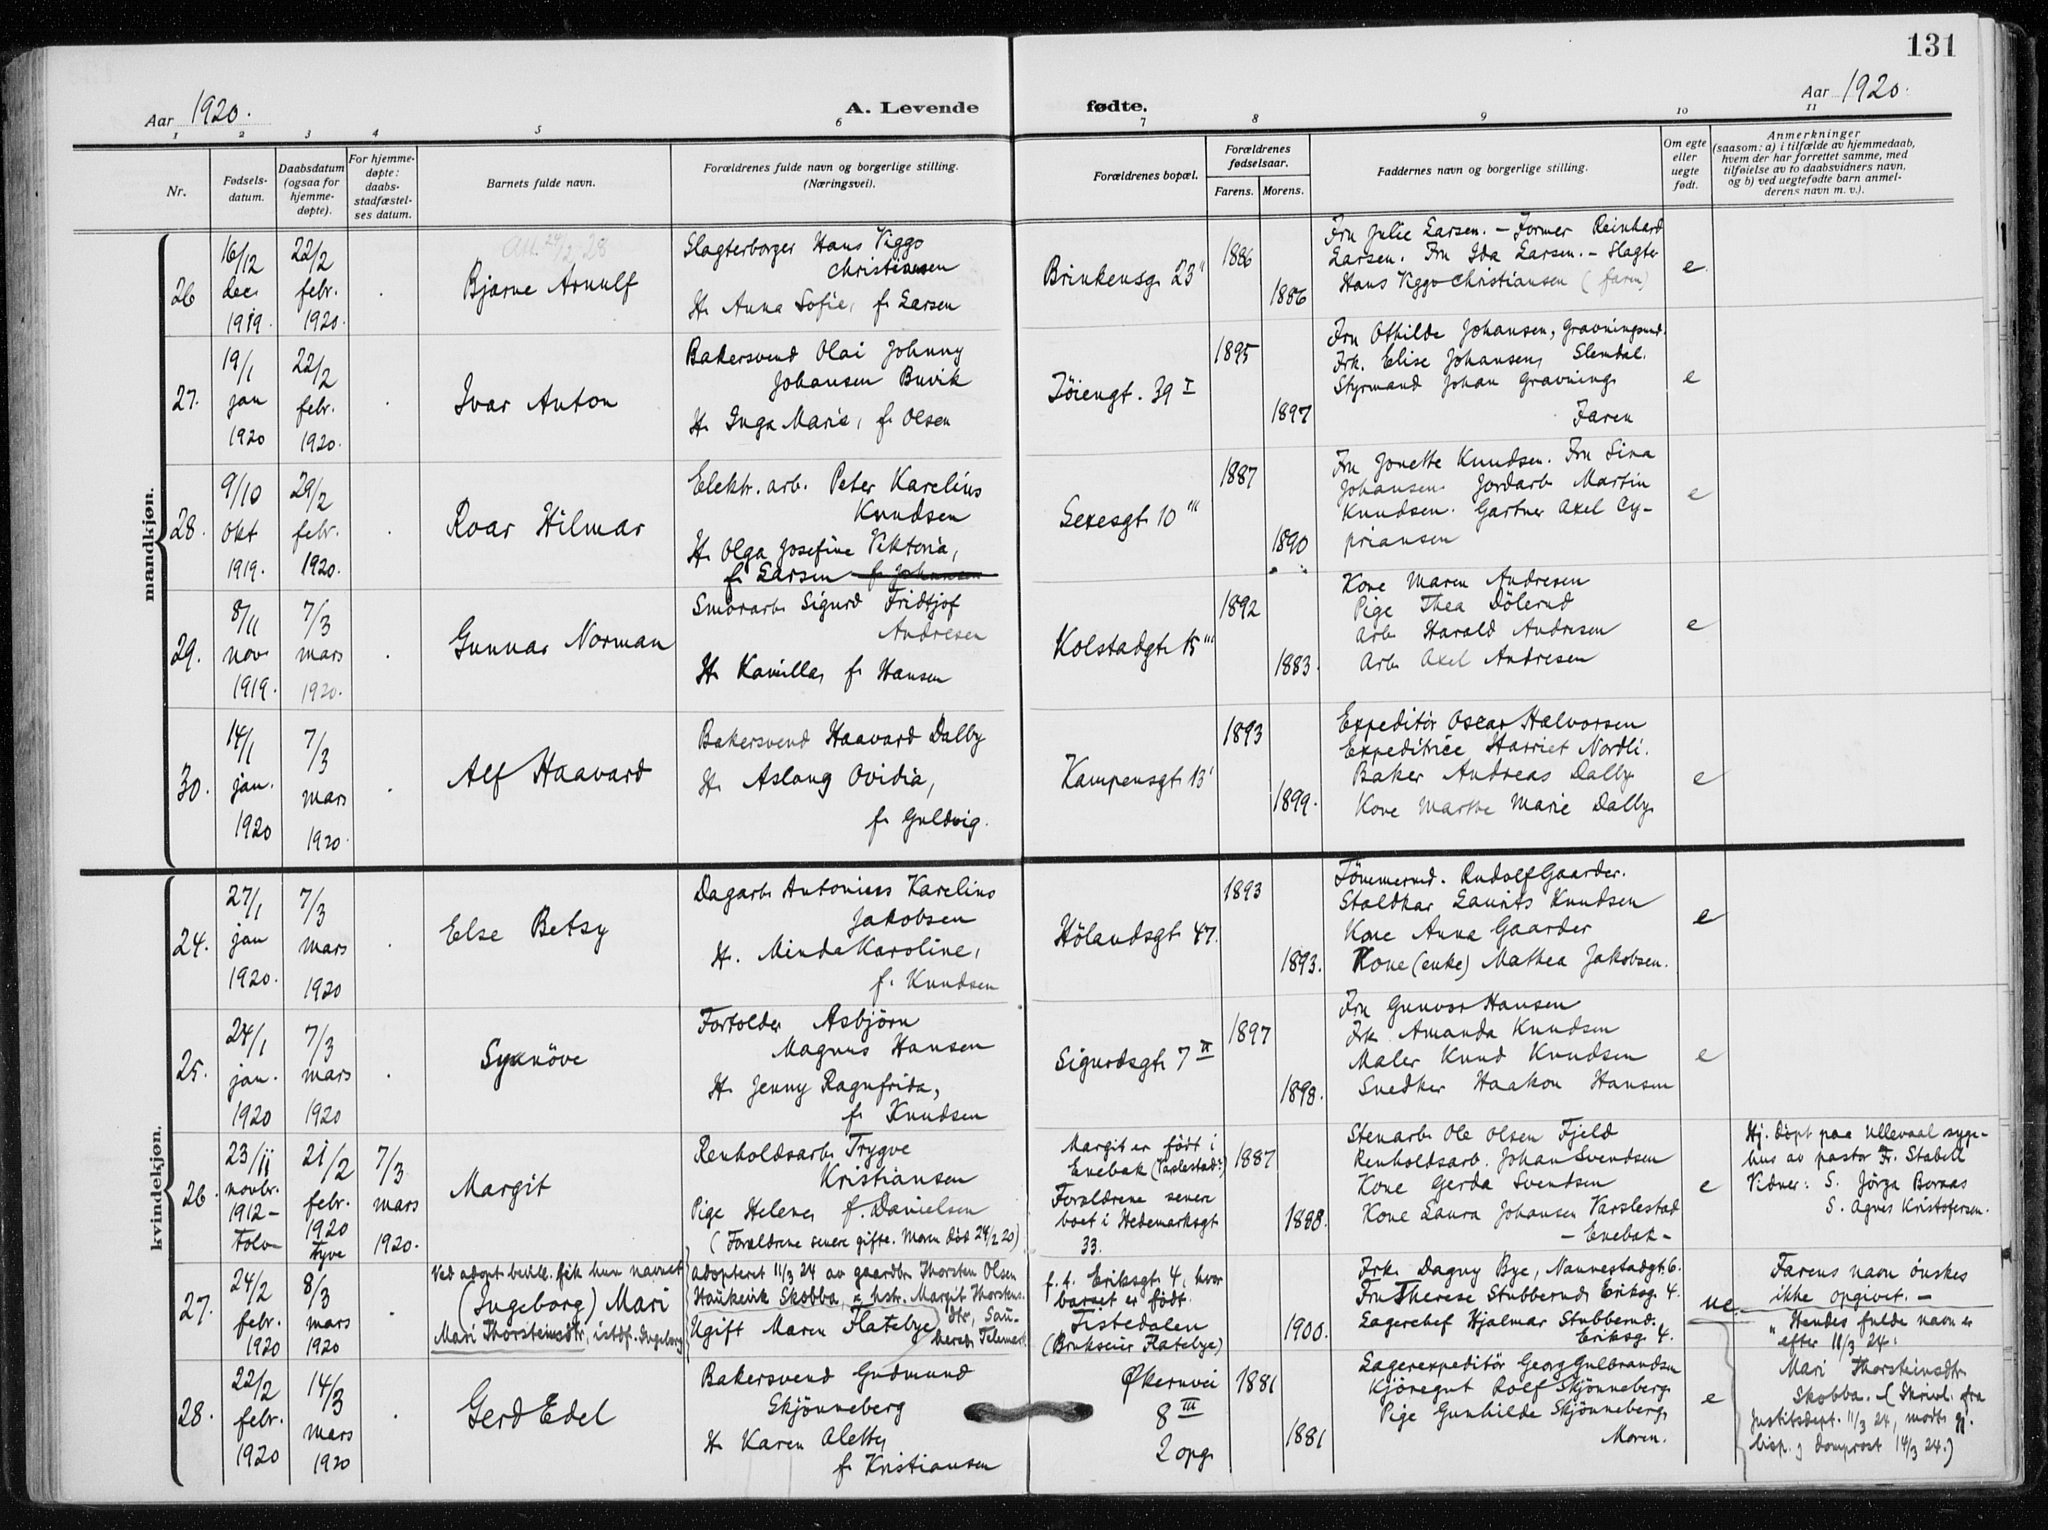 131
Aar 1920.
A. Levende fødte.
Aar 1920.
1 2 3 4 5 6 7 8 9 10 11
Nr.
Fødsels-
datum.
Daabsdatum
(ogsaa for
hjemme-
døpte).
For hjemme-
døpte:
daabs-
stadfæstel-
ses datum.
Barnets fulde navn.
Forældrenes fulde navn og borgerlige stilling.
(Næringsvei).
Forældrenes bopæl.
Forældrenes
fødselsaar.
Farens. Morens.
Faddernes navn og borgerlige stilling.
Om egte
eller
uegte
født.
Anmerkninger
(saasom: a) i tilfælde av hjemmedaab,
hvem der har forrettet samme, med
tilføielse av to daabsvidners navn,
og b) ved uegtefødte barn anmel-
derens navn m. v.).
mandkjøn.
26
16/12
dec.
1919.
22/2
febr.
1920.
Att. 24/2 28
Bjarne Arnulf
Slagterborger Hans Viggo
Christiansen
H. Anna Sofie, f. Larsen
Brinkensg. 23 I
1886
1886
Fru Julie Larsen. – Former Reinhard
Larsen. Fru Ida Larsen. – Slagter
Hans Viggo Christiansen (faren)
e
27.
19/1
jan
1920
22/2
febr.
1920.
Ivar Anton
Bakersvend Olai Johnny
Johansen Buvik
H. Inga Marie, f. Olsen
Töiengt. 39 I
1895
1897
Fru Othilde Johansen, Gravningsund.
Frk. Elise Johansen, Slemdal.
Styrmand Johan Gravnings
Faren
e
28.
9/10
okt
1919.
29/2
febr.
1920.
Roar Hilmar
Elektr. arb. Peter Karelius
Knudsen
H. Olga Josefine Viktoria,
f. Larsen f. Johansen
Sexesgt. 10 III
1887
1890
Fru Jonette Knudsen. Fru Sina
Johansen. Jordarb. Martin
Knudsen. Gartner Axel Cy-
priansen
e
29.
8/11
nov.
1919.
7/3
mars
1920.
Gunnar Norman
Smörarb. Sigurd Fridtjof
Andresen
H. Kamilla, f. Hansen
Kolstadgt. 15 III
1892
1883.
Kone Maren Andresen
Pige Thea Dölerud
Arb. Harald Andresen
Arb. Axel Andresen
e
30.
14/1
jan.
1920
7/3
mars
1920.
Alf Haavard
Bakersvend Haavard Dalby
H. Aslaug Ovidia,
f. Guldvig.
Kampensgt. 13 I
1893
1899.
Expeditör Oscar Halvorsen
Expeditrice Harriet Nordli.
Baker Andreas Dalby
Kone Marthe Marie Dalby.
e
kvindekjøn.
24.
27/1
jan
1920.
7/3
mars
1920
Else Betsy
Dagarb. Antonius Karelius
Jakobsen
H. Minda Karoline,
f. Knudsen
Hölandsgt. 47.
1893
1893.
Tömmermd. Rudolf Gaarder.
Staldkar Laurits Knudsen
Kone Anna Gaarder
Kone (enke) Mathea Jakobsen.
e
25.
24/1
jan.
1920
7/3
mars
1920
Synnöve
Fortolder Asbjörn
Magnus Hansen
H. Jenny Ragnfrida,
f. Knudsen
Sigurdsgt. 7 II
1897
1898.
Fru Gunvor Hansen
Frk. Amanda Knudsen
Maler Knud Knudsen
Snedker Haakon Hansen
e
26.
23/11
novbr.
1912 –
Tolv
21/2
febr.
1920
Tyve
7/3
mars
1920.
Margit
Renholdsarb. Trygve
Kristiansen
Pige Helene, f. Danielsen
(Forældrene senere gifte. Moren död 24/2 20)
Margit er født i
Enebak (Varslestad)
Forældrene senere
boet i Hedemarksgt
33.
1887
1888.
Stenarb. Ole Olsen Fjeld
Renholdsarb. Johan Svendsen
Kone Gerda Svendsen
Kone Laura Johansen Varslestad
– Enebak –
e
Hj. döpt paa Ullevaal syge-
hus av pastor Fr. Stabell
Vidner: S. Jörga Boraas
S. Agnes Kristofersen.
27.
24/2
febr.
1920
8/3
mars
1920
Ved adopt. bevill. fik hun navnet
(Ingeborg) Mari
Mari Thorsteinsdtr, istdf. Ingeborg
adopteret 11/3 24 av gaardbr. Thorsten Olsen
Haukevik Skobba, & hstr. Margit Thorstens-
dtr, Sau-
herad Telemark
Ugift Maren Flatebye
f. t. Eriksgt. 4, hvor
barnet er født.
Tistedalen
(Brukseier Flatebye)
1900.
Frk. Dagny Bye, Nannestadgt. 6.
Fru Therese Stubberud, Eriksg. 4.
Lagerchef Hjalmar Stubberud.
Eriksg. 4.
ue.
Farens navn önskes
ikke opgivet. –
"Hendes fulde navn er
efter 11/3 24:
Mari Thorsteinsdtr
Skobba. (Skrivl. fra
Justitsdept. 11/3 24, modt. gj.
bisp. og domprost 14/3 24.)
28.
22/2
febr.
1920
14/3
mars
1920
Gerd Edel
Bakersvend Gudmund
Skjönneberg
H. Karen Alette,
f. Kristiansen
Økernvei
8 III
2 opg.
1881
1881
Lagerexpeditör Georg Gulbrandsen
Kjöregut Rolf Skjönneberg
Pige Gunhilde Skjönneberg
Moren.
e